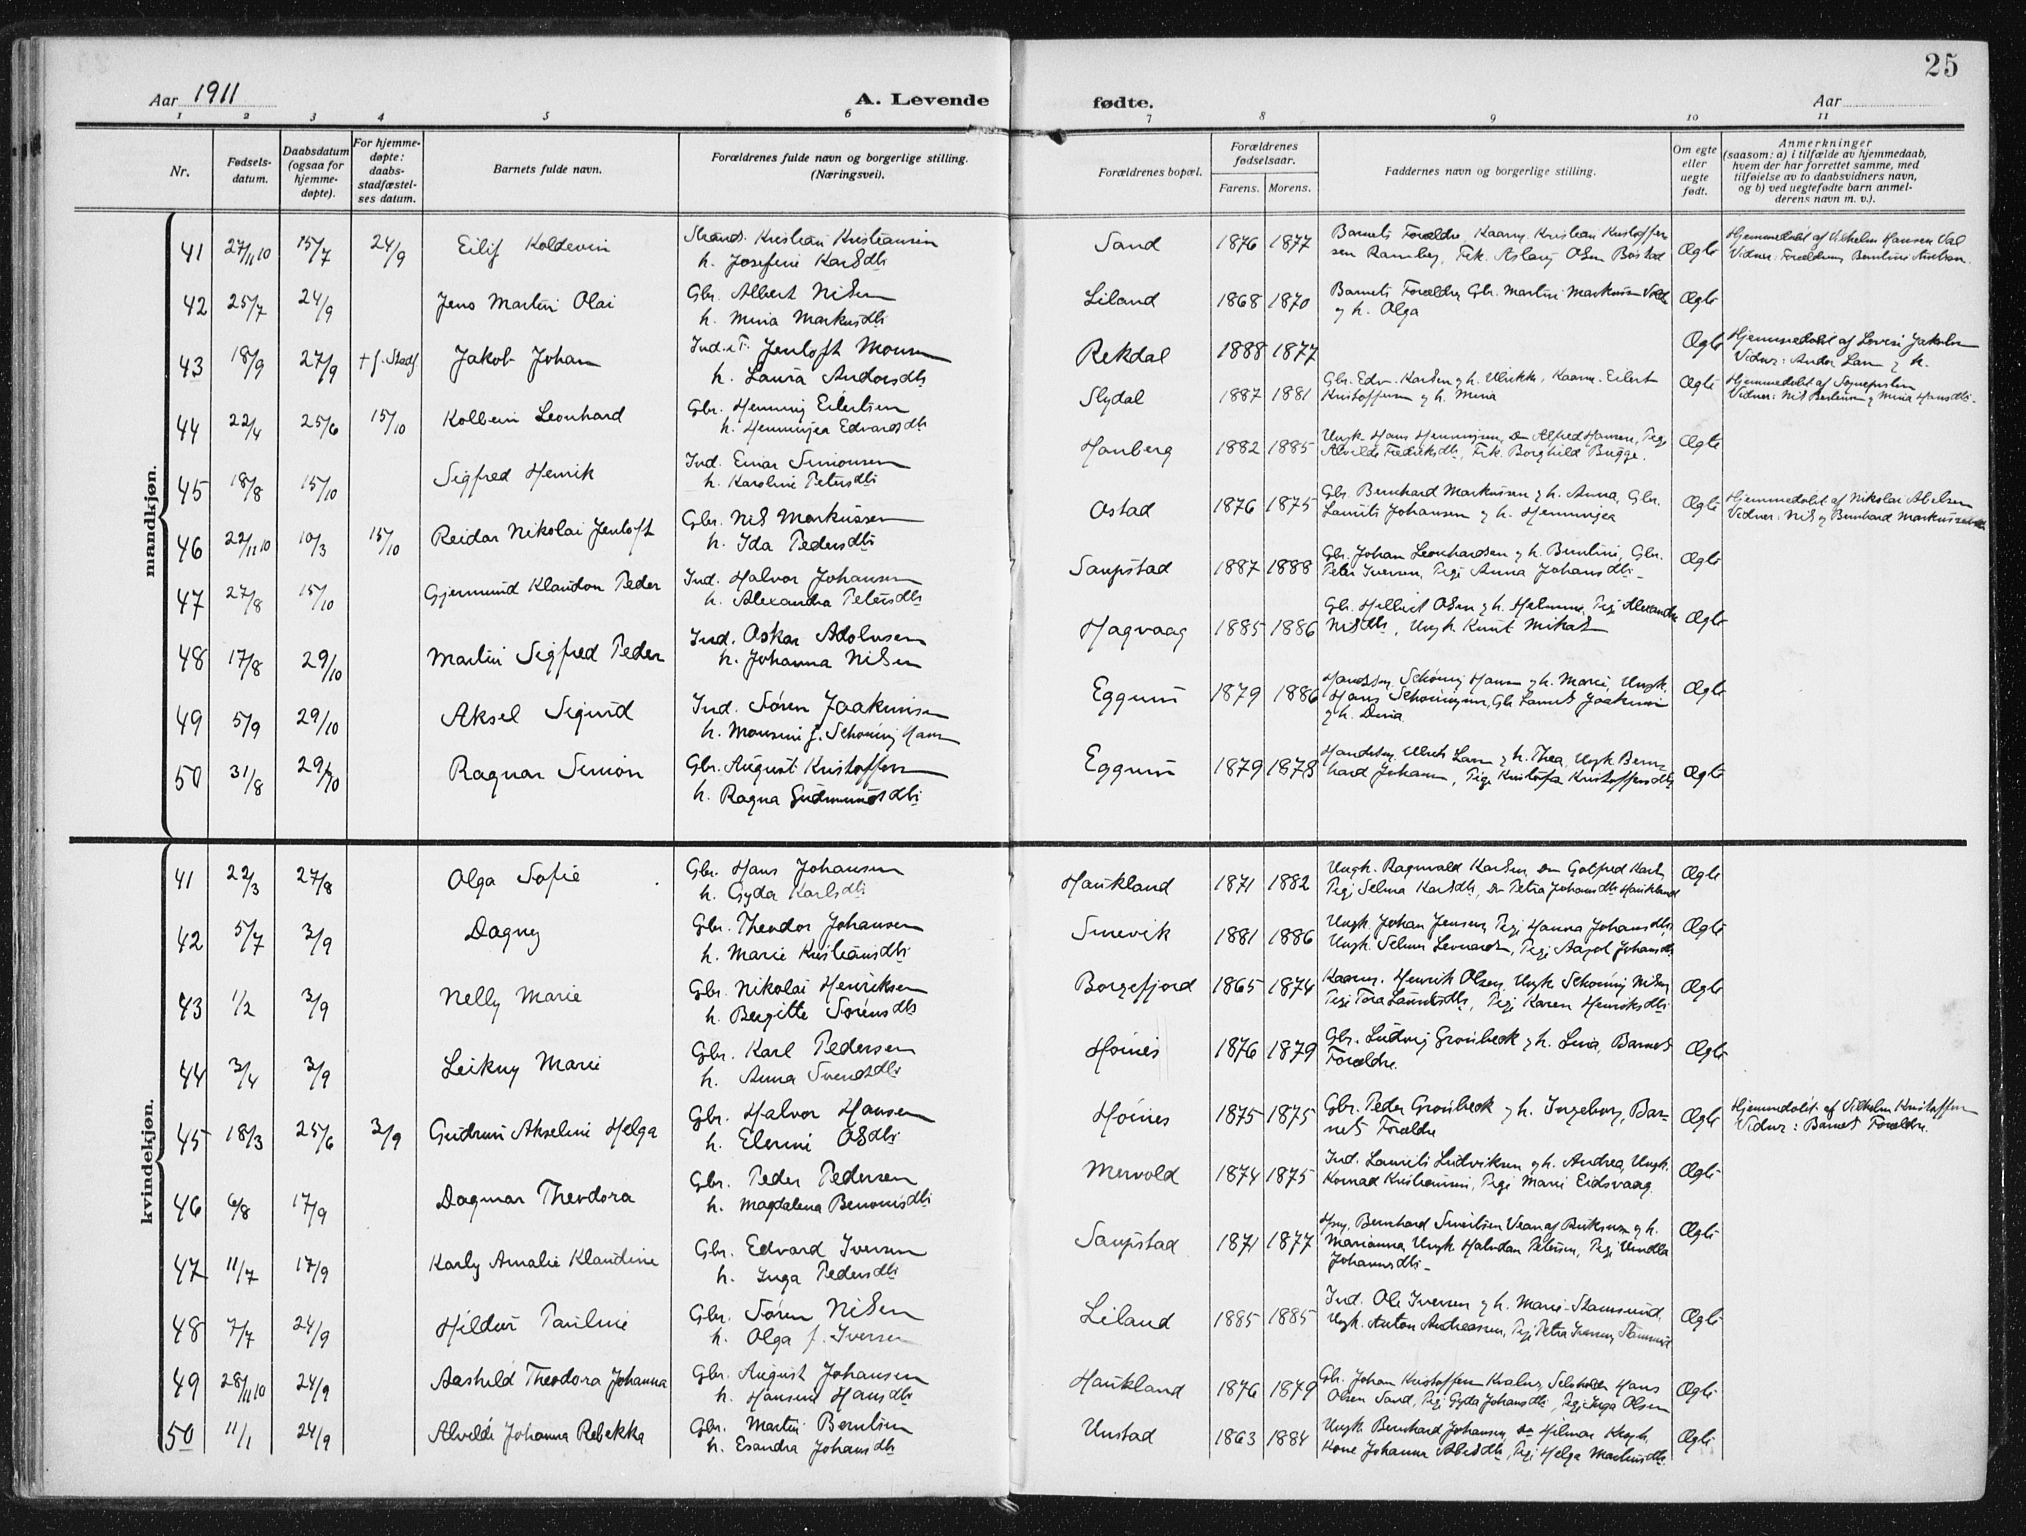 25
Aar 1911
A. Levende
fødte.
Aar
1 2 3 4 5 6 7 8 9 10 11
Nr.
Fødsels-
datum.
Daabsdatum
(ogsaa for
hjemme-
døpte).
For hjemme-
døpte:
daabs-
stadfæstel-
ses datum.
Barnets fulde navn.
Forældrenes fulde navn og borgerlige stilling.
(Næringsvei).
Forældrenes bopæl.
Forældrenes
fødselsaar.
Farens. Morens.
Faddernes navn og borgerlige stilling.
Om egte
eller
uegte
født.
Anmerkninger
(saasom: a) i tilfælde av hjemmedaab,
hvem der har forrettet samme, med
tilføielse av to daabsvidners navn,
og b) ved uegtefødte barn anmel-
derens navn m. v.).
mandkjøn.
41 27/11 10 15/7 24/9 Eilif Koldevin Kristian Kristiansen
h. Josefine Karlsdtr Sand 1876 1877 Barnets Forældre, Kaarm. Kristian Kristoffer
sen Ramberg, Frk. Aslaug Olsen Bøstad Ægte Hjemmedøbt af Vilhelm Hansen Val
Vidner: Forældrene
42 25/7 24/9 Jens Martin Olai Gbr. Albert Nilsen
h. Mina Markusdtr Liland 1868 1870 Barnets Forældre, Gbr. Martin Markussen
og h. Olga Ægte
43 18/9 27/9 + f. Stadf. Jakob Johan Ind. Jenloft Monsen
h. Laura Andorsdtr Rekdal 1888 1877 Ægte Hjemmedøbt af Jakobsen
Vidner: Andor Larsen og h.
44 22/4 25/6 15/10 Kolbein Leonhard Gbr. Henning Eilertsen
h. Henningea Edvardsdtr Slydal 1887 1881 Gbr. Edv. Karlsen og h. Ulrikke, Kaarm. Eilert
Kristoffersen og h. Mina Ægte Hjemmedøbt af Sognepresten
Vidner: Nils Berntsen og Mina Hansdtr.
45 18/8 15/10 Sigfred Henrik Ind. Einar Simonsen
h. Karoline Petersdtr Hanberg 1882 1885 Ungk. Hans Henningsen, Do Alfred Hansen, Pige
Alvilde Fredriksdtr, Frk. Borghild Bugge. Ægte
46 22/11 10 10/3 15/10 Reidar Nikolai Jenloft Gbr. Nils Markussen
h. Ida Pedersdtr Ostad 1876 1875 Gbr. Bernhard Markussen og h. Anna, Gbr.
Laurits Johansen og h. Henningea Ægte Hjemmedøbt af Nikolai Abelsen
Vidner: Nils og Bernhard Markussen
47 27/8 15/10 Gjermund Klaudon Peder Ind. Halvor Johansen
h. Alexandra Petersdtr Saupstad 1887 1888 Gbr. Johan Leonhardsen og h. Berntine, Gbr.
Peter Iversen, Pige Anna Johansdtr. Ægte
48 17/8 29/10 Martin Sigfred Peder Ind. Oskar Adolvsen
h. Johanna Nilsen Hagvaag 1885 1886 Gbr. Hilbert Olsen og h. Helmine, Pige Alexandra
Nilsdtr, Ungk. Knut Mikals Ægte
49 5/9 29/10 Aksel Sigurd Ind. Søren Jaakimsen
h. Monsine f. Schøning Hans Eggum 1879 1886 Schøning Hansen og h. Marie, Ungk.
Hans Schøningsen, Gbr. Jaakimsen
og h. Dina Ægte
50 31/8 29/10 Ragnar Simon Gbr. August Kristoffersen
h. Ragna Gudmundsdtr Eggum 1879 1878 Ulrik Larsen og h. Thea, Ungk. Bern-
hard Johansen, Pige Kristofa Kristoffersdtr Ægte
kvindekjøn.
41 22/3 27/8 Olga Sofie Gbr. Hans Johansen
h. Gyda Karlsdtr Haukland 1871 1882 Ungk. Ragnvald Karlsen, Do Golfred Karls
Pige Selma Karlsdtr, Do Petra Johansdtr Haukland Ægte
42 5/7 3/9 Dagny Gbr. Theodor Johansen
h. Marie Kristiansdtr Smevik 1881 1886 Ungk. Johan Jensen, Pige Hanna Johansdtr,
Ungk. Selmer Leonardsen, Pige Aagot Johansdtr Ægte
43 1/2 3/9 Nelly Marie Gbr. Nikolai Henriksen
h. Bergitte Sørensdtr Borgefjord 1865 1874 Kaarm. Henrik Olsen, Ungk. Schøning Nilsen
Pige Tora Lauritsdtr, Pige Karen Henriksdtr Ægte
44 3/4 3/9 Leikny Marie Gbr. Karl Pedersen
h. Anna Svendsdtr Hoines 1876 1879 Gbr. Ludvig Grønbeck og h. Lina, Barnets
Forældre. Ægte
45 18/3 25/6 3/9 Gudrun Akseline Helga Gbr. Halvor Hansen
h. Elerine Olsdtr Hoines 1875 1875 Gbr. Peder Grønbeck og h. Ingeborg, Bar-
nets Forældre Ægte Hjemmedøbt af Vilhelm Kristoffersen
Vidner: Barnets Forældre.
46 6/8 17/9 Dagmar Theodora Gbr. Peder Pedersen
h. Magdalena Benonisdtr Mervold 1874 1875 Ind. Laurits Ludviksen og h. Andrea, Ungk.
Konrad Kristiansen, Pige Marie Eidsvaag. Ægte
47 11/7 17/9 Karly Amalie Klaudine Gbr. Edvard Iversen
h. Inga Pedersdtr Saupstad 1871 1877 Bernhard og h.
Marianna, Ungk. Halvdan Petersen, Pige
Johannesdtr. Ægte
48 7/7 24/9 Hildur Pauline Gbr. Søren Nilsen
h. Olga f. Iversen Liland 1885 1885 Ind. Ole Iversen og h. Marie Stamsund.
Ungk. Anton Andreassen, Pige Petra Iversen, Stamsund Ægte
49 28/11 10 24/9 Aashild Theodora Johanna Gbr. August Johansen
h. Hansine Hansdtr Haukland 1876 1879 Gbr. Johan Kristoffersen Kvalnes, Hans
Olsen Sand, Pige Gyda Johansdtr, Pige Inga Olsen Ægte
50 11/1 24/9 Alvilde Johanna Rebekka Gbr. Martin Berntsen
h. Esandra Johansdtr Unstad 1863 1884 Ungk. Bernhard Johansen, Do Hilmar
Kone Johanna Abelsdtr, Pige Helga Martinsdtr. Ægte